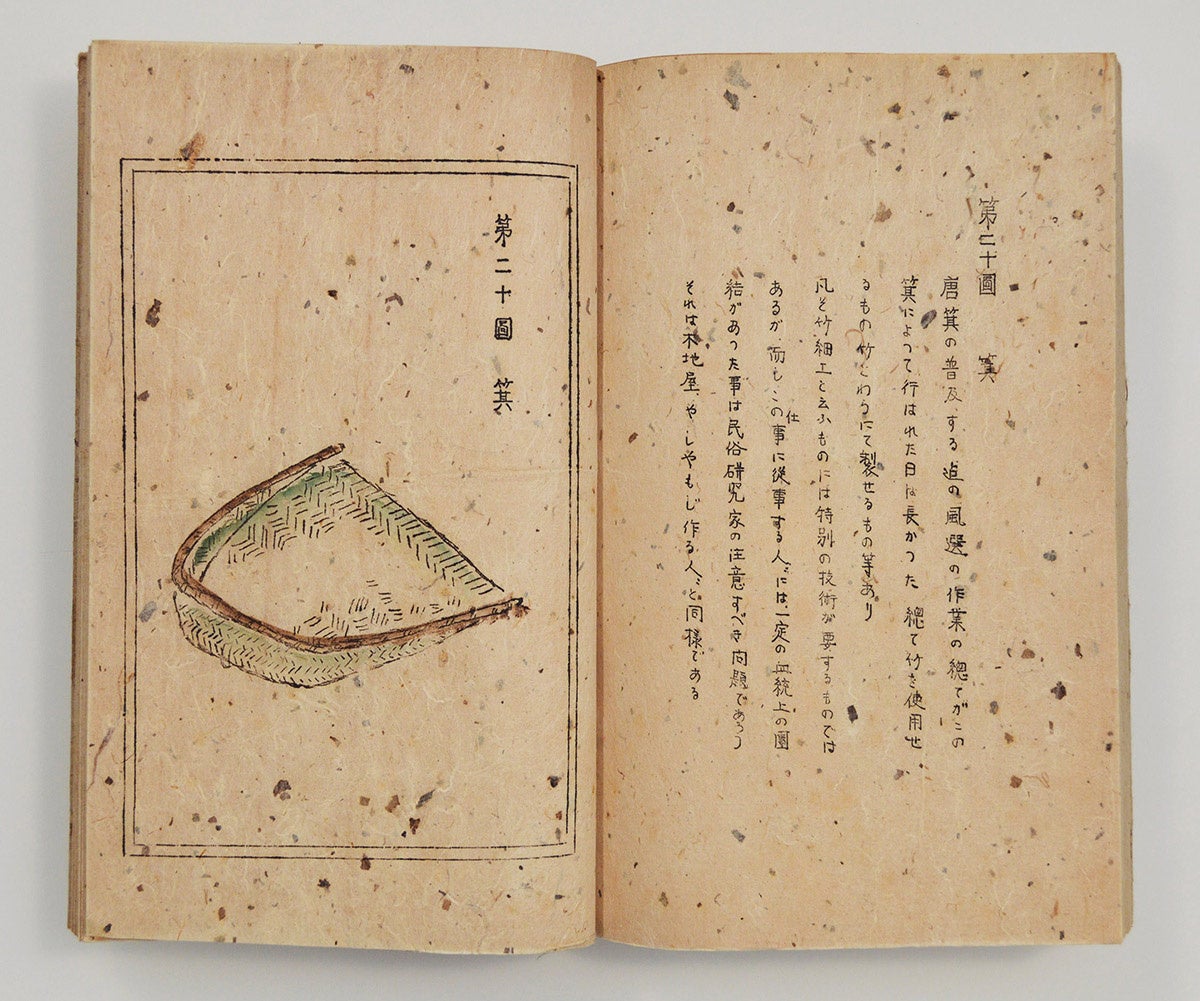 第二十圖　箕
唐箕の普及する迄の風選の作業の總てがこの
箕によつて行はれた日は長かつた 總て竹を使用せ
るもの竹とわらにて製せるもの等あり
凡そ竹細工と云ふものには特別の技術が要するものでは
あるが、而もこの仕事に從事する人々には、一定の血統上の團
結があつた事は民俗研究家の注意すべき問題であらう
それは木地屋、やしやもじ作る人々と同様である
第二十圖　箕